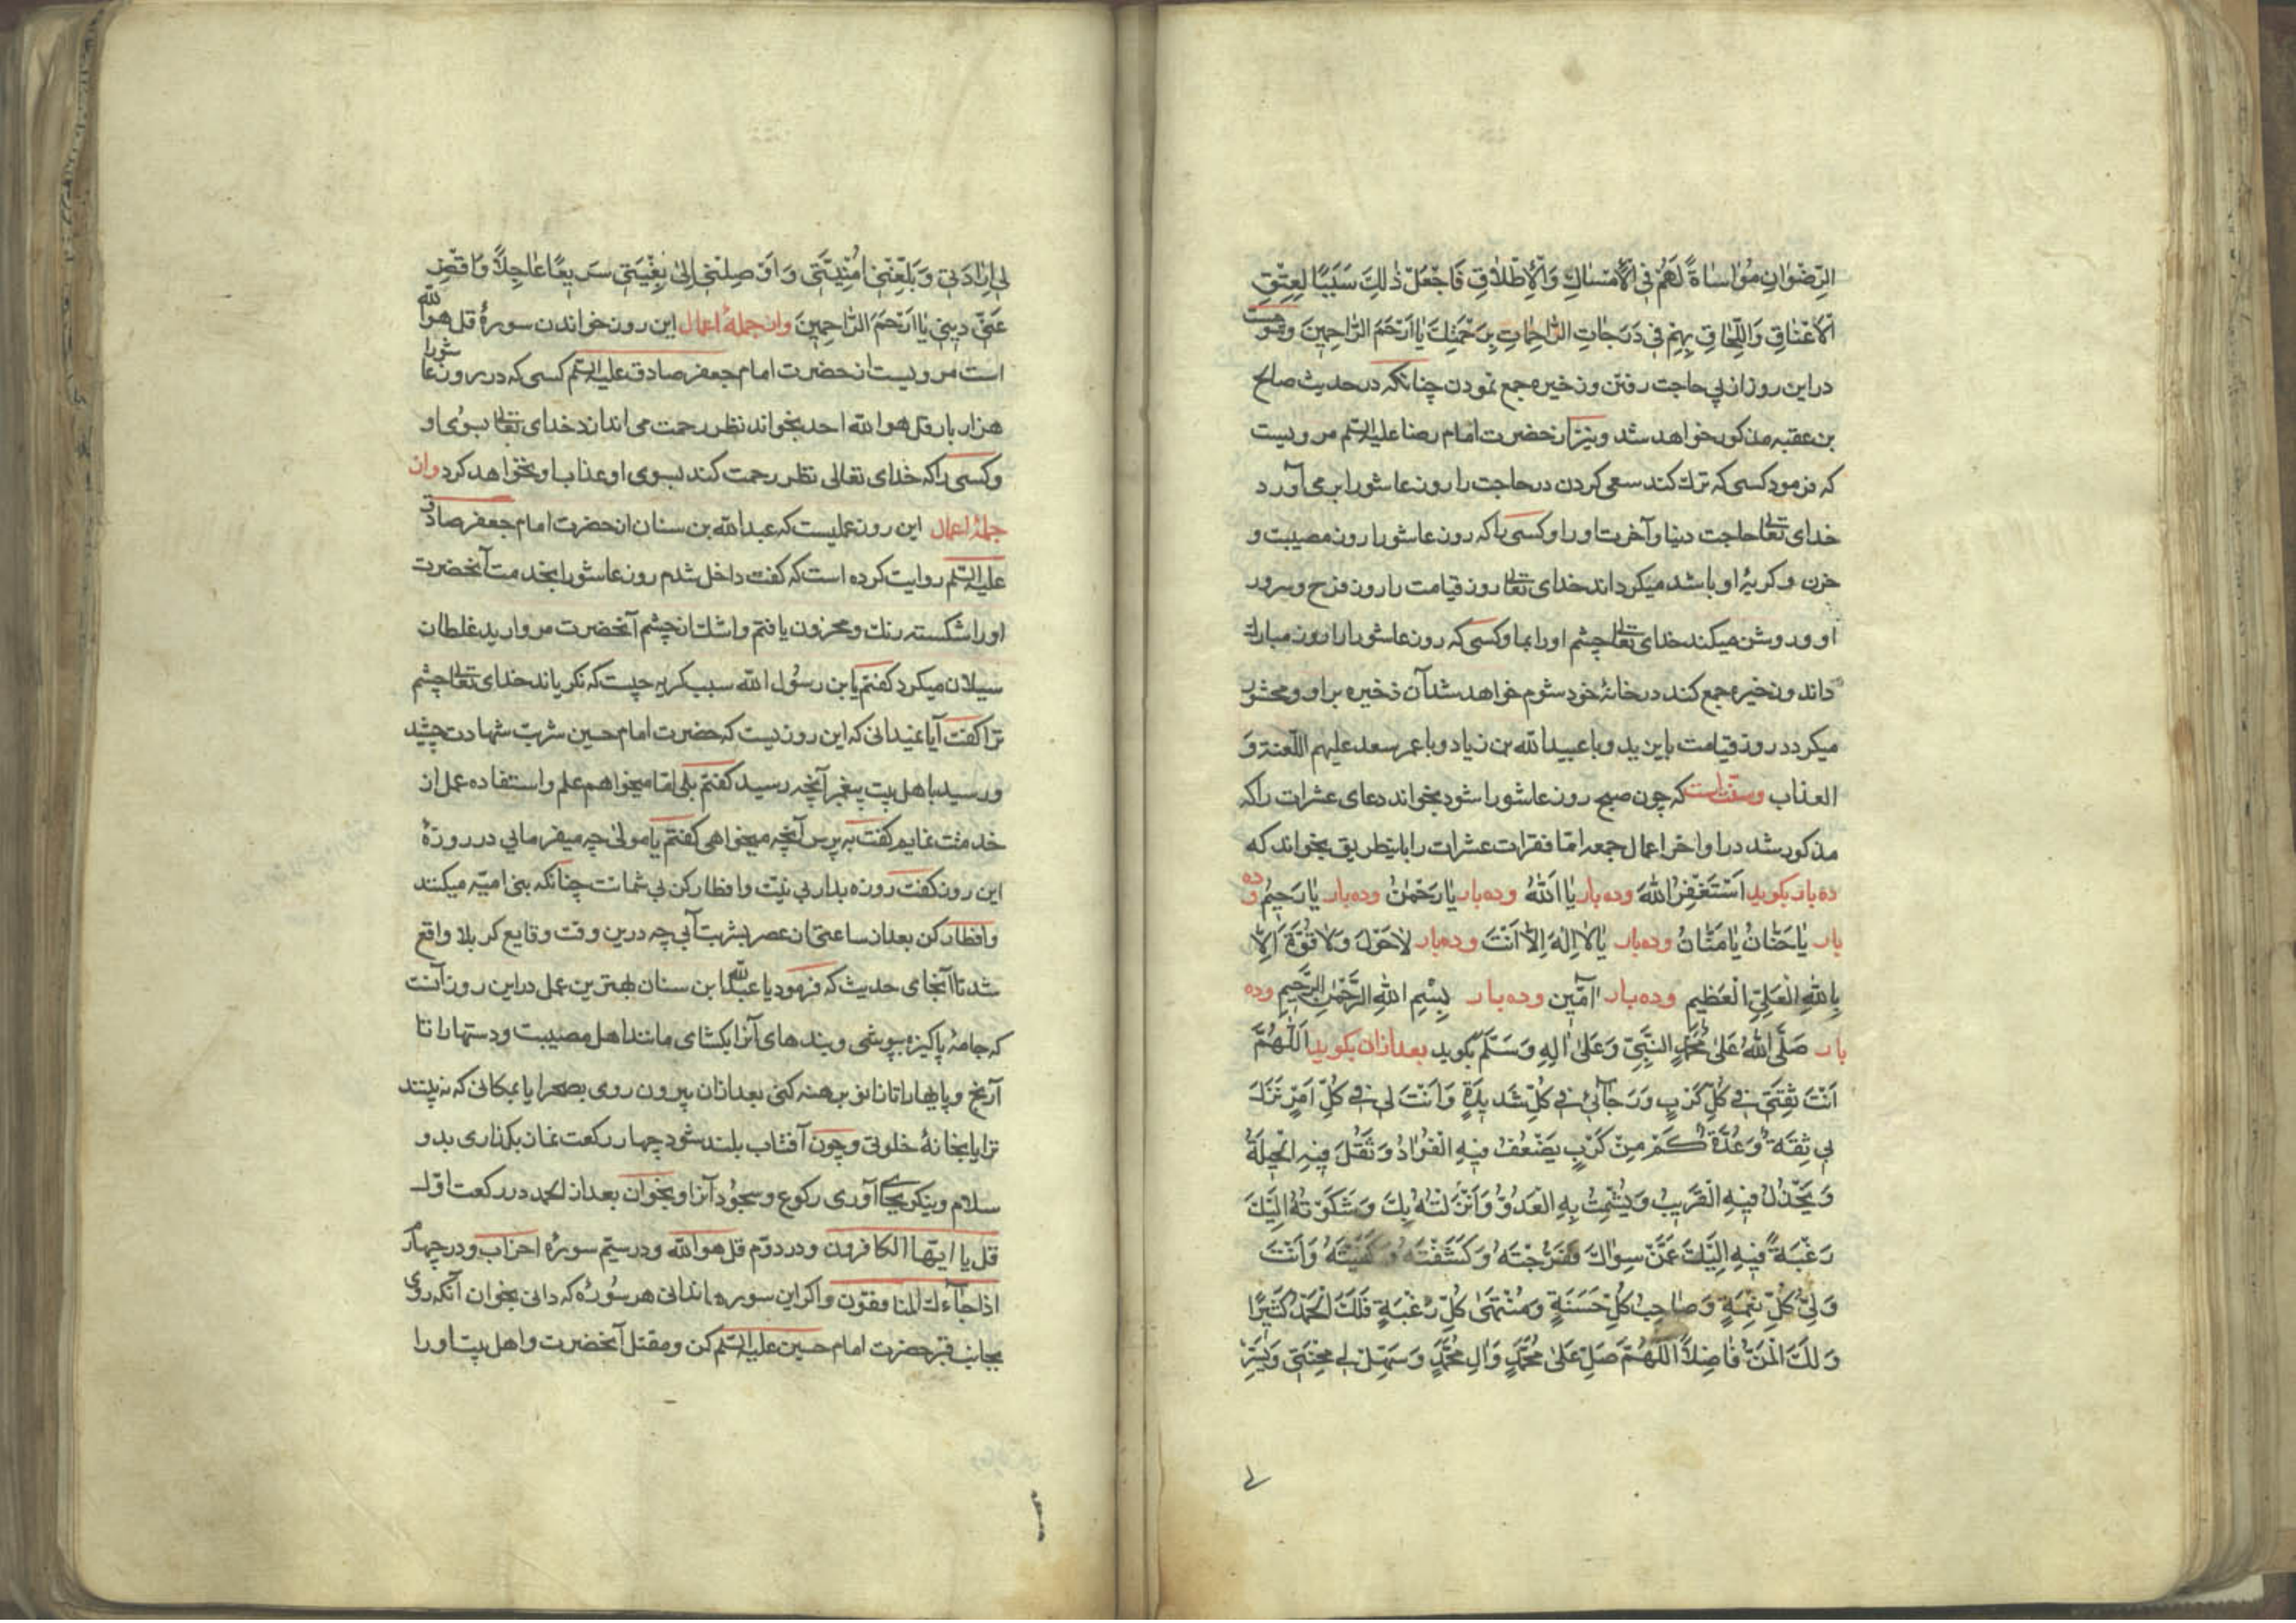 الرِّضْوٰانِ مُوٰاسٰاةً لَهُمْ فِی الْاِمْسٰاكِ وَالْاِطْلٰاقِ فَاجْعَلْ ذٰلِكَ سَبَبًا لِعِتْقِ
الْاَعْنٰاقِ وَاللِّحٰاقِ بِهِمْ فِی دَرَجٰاتِ بِرَحْمَتِكَ یٰا اَرْحَمَ الرّٰاحِمِینَ
در این روز از پی حاجت رفتن و ذخیره جمع نمودن چنانکه در حدیث صالح
بن عقبه مذکور خواهد شد و نیز از حضرت امام رضا علیه السلم مرویست
که فرمود کسی که ترك کند سعی کردن در حاجت را روز عاشورا بر می آورد
خدای تعالی حاجت دنیا و آخرت او را و کسی را که روز عاشورا روز مصیبت و
حزن و کریهٔ او باشد میکرداند خدای تعالی روز قیامت را روز فرح و سرور
او و روشن میکند خدای تعالی چشم او را بما و کسی که روز عاشورا را روز مبارك
داند و ذخیره جمع کند در خانهٔ خود شوم خواهد شد آن ذخیره بر او و محشور
میکردد روز قیامت با یزید و با عبید الله بن زیاد و با عمر سعد علیهم اللعنة و
العذاب و سنت است که چون صبح روز عاشورا شود بخواند دعای عشرات را که
مذکور شد در اواخر اعمال جمعه اما فقرات عشرات را باینطریق بخواند که
ده بار بکوید اَسْتَغْفِرُ اللهَ و ده بار یٰا اَللهُ و ده بار یٰا رَحْمٰنُ و ده بار یٰا رَحِیمُ و ده
بار یٰا حَنّٰانُ یٰا مَنّٰانُ و ده بار یٰا لٰا اِلٰهَ اِلّٰا اَنْتَ و ده بار لٰا حَوْلَ وَلٰا قُوَّةَ اِلّٰا
بِاللهِ الْعَلِیِّ الْعَظِیمِ و ده بار اٰمّین و ده بار بِسْمِ اللهِ الرَّحْمٰنِ الرَّحِیمِ و ده
بار صَلَّی اللهُ عَلیٰ مُحَمَّدٍ النَّبِیِّ وَعَلیٰ اٰلِهِ وَسَلَّمَ بکوید بعد از ان بکوید اَللّٰهُمَّ
اَنْتَ ثِقَتِی فِی كُلِّ كَرْبٍ وَرَجٰائِی فِی كُلِّ شَدِیدَةٍ وَاَنْتَ لِی فِی كُلِّ اَمْرٍ نَزَلَ
بِی ثِقَةٌ وَعُدَّةٌ كَمْ مِنْ كَرْبٍ یَضْعُفُ فِیهِ الْفُوٰادُ وَتَقِلُّ فِیهِ الْحِیلَةُ
وَیَخْذُلُ فِیهِ الْقَرِیبُ وَیَشْمِتُ بِهِ الْعَدُوُّ وَاَنْزَلْتُهُ بِكَ وَشَكَوْتُهُ اِلَیْكَ
رَغْبَةً فِیهِ اِلَیْكَ عَمَّنْ سِوٰاكَ فَفَرَّجْتَهُ وَكَشَفْتَهُ وَكَفَیْتَهُ وَاَنْتَ
وَلِیُّ كُلِّ نِعْمَةٍ وَصٰاحِبُ كُلِّ حَسَنَةٍ وَمُنْتَهیٰ كُلِّ رَغْبَةٍ فَلَكَ الْحَمْدُ كَثِیرًا
وَلَكَ الْمَنُّ فٰاضِلًا اَللّٰهُمَّ صَلِّ عَلیٰ مُحَمَّدٍ وَاٰلِ مُحَمَّدٍ وَسَهِّلْ لِی مِحْنَتِی وَیَسِّرْ
لی
لِی اِرٰادَتِی وَبَلِّغْنِی اُمْنِیَّتِی وَاَوْصِلْنِی اِلیٰ بِغْیَتِی سَرِیعًا عٰاجِلًا وَاقْضِ
عَنِّی دِینِی یٰا اَرْحَمَ الرّٰاحِمِینَ و از جملهٔ اعمال این روز خواندن سورهٔ قل هو الله
است مرویست از حضرت امام جعفر صادق علیه السلم کسی که در روز عاشورا
هزار بار قل هو الله احد بخواند نظر رحمت می اندازد خدای تعالی بسوی او
و کسی را که خدای تعالی نظر رحمت کند بسوی او عذاب او نخواهد کرد و از
جملهٔ اعمال این روز عملیست که عبد الله بن سنان از حضرت امام جعفر صادق
علیه السلم روایت کرده است که کفت داخل شدم روز عاشورا بخدمت آنحضرت
او را شکسته رنك و محزون یافتم و اشك از چشم آنحضرت مروارید غلطان
سیلان میکرد کفتم یا بن رسول الله سبب کریه چیست که نکریاند خدای تعالی چشم
ترا کفت آیا نمیدانی که این روزیست که حضرت امام حسین شربت شهادت چشید
و رسید باهل بیت پیغمبر آنچه رسید کفتم بلی اما میخواهم علم و استفاده عمل از
خدمتت نمایم کفت به پرس آنچه میخواهی کفتم یا مولیٰ چه میفرمایی در روزهٔ
این روز کفت روزه بدار بی نیت و افطار کن بی شماتت چنانکه بنی امیّه میکنند
و افطار کن بعد از ساعتی از عصر بشربت آبی چه درین وقت وقایع کربلا واقع
شد تا آنجای حدیث که فرمود یا عبد الله ابن سنان بهترین عمل در این روز آنست
که جامهٔ پاکیزه بپوشی و بندهای آنرا بکشای مانند اهل مصیبت و دستها را تا
آرنج و پایها را تا زانو برهنه کنی بعد از ان بیرون روی بصحرا یا بمکانی که نه بینند
ترا یا بخانهٔ خلوتی و چون آفتاب بلند شود چهار رکعت نماز بکذاری بدو
سلام و نیکو بجای آوری رکوع و سجود آنرا و بخوان بعد از الحمد در رکعت اوّل
قل یا ایها الکافرون و در دوّم قل هو الله و در سیّم سورهٔ احزاب و در چهارم
اذا جآءك المنافقون و اکر این سوره ها ندانی هر سوره که دانی بخوان آنکه روی
بجانب قبر حضرت امام حسین علیه السلم کن و مقتل آنحضرت و اهل بیت او را